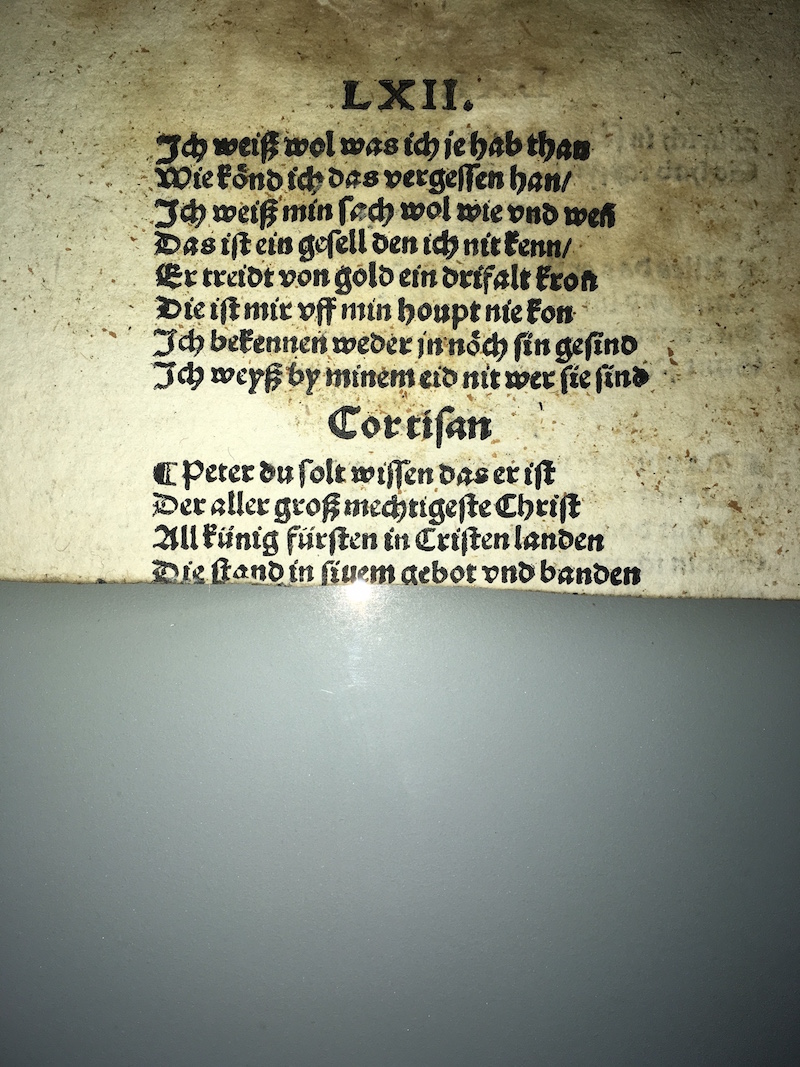 LXII.
Ich weiß wol was ich je hab than
Wie könd ich das vergessen han/
Ich weiß min sach wol wie vnd weñ
Das ist ein gesell den ich nit kenn/
Er treidt von gold ein drifalt kron
Die ist mir vff min houpt nie kon
Ich bekennen weder jn nöch sin gesind
Ich weyß by minem eid nit wer sie sind
Cortisan
¶ Peter du solt wissen das er ist
Der aller groß mechtigeste Christ
All künig fürsten in Cristen landen
Die stand in sinem gebot vnd banden